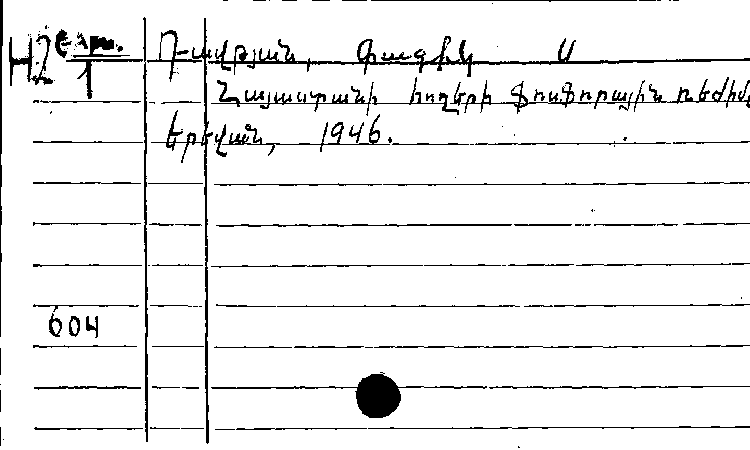 H2 1 Դավթյան, Գագիկ Ս
Հայաստանի հողերի ֆոսֆորային ռեժիմ
Երևան, 1946.
604